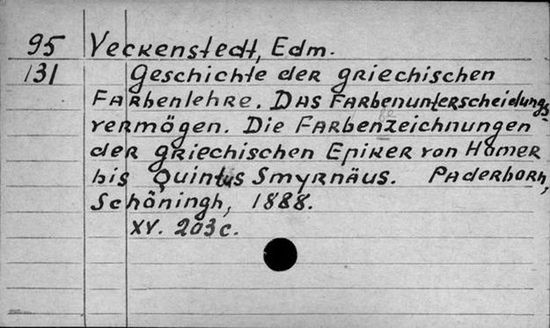 95 Veckenstedt, Edm.
131 Geschichte der griechischen
Farbenlehre. Das Farbenunterscheidungs
vermögen. Die Farbenbezeichnungen
der griechischen Epiker von Homer
bis Quintus Smyrnäus. Paderborn,
Schöningh, 1888.
XV. 203c.